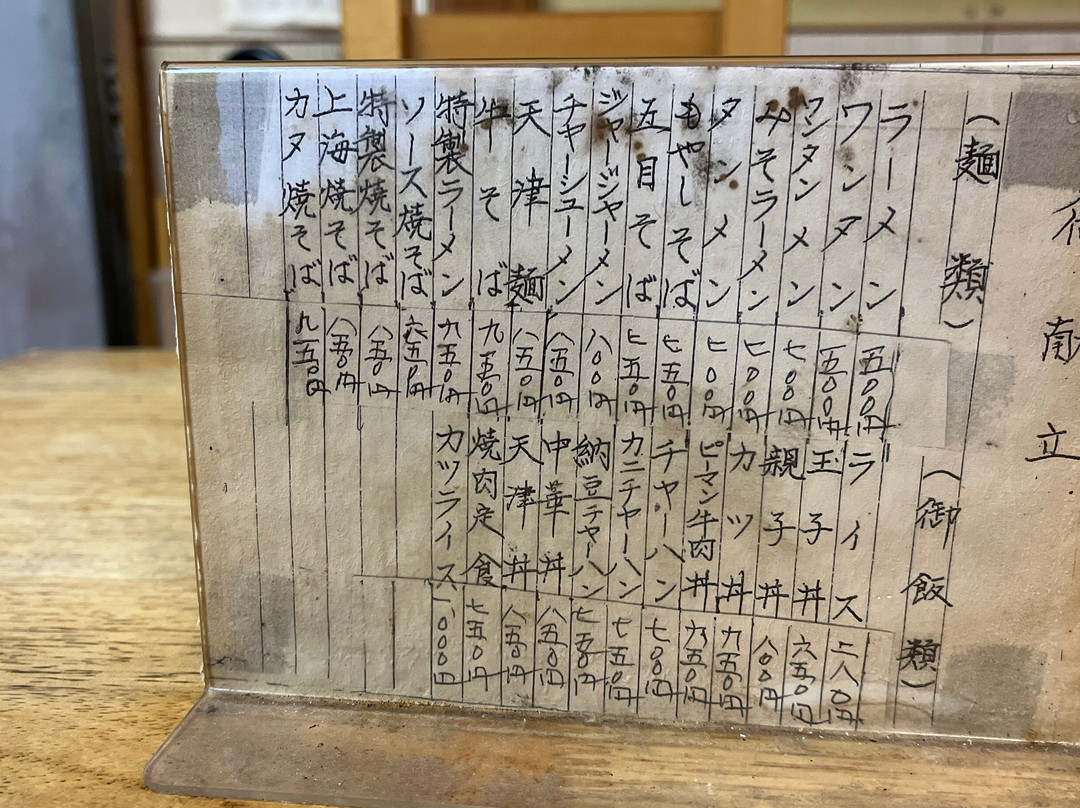 献立
（麺類）
ラーメン 五〇〇円
ワンタン 五〇〇円
ワンタンメン 七〇〇円
みそラーメン 七〇〇円
タンメン 七〇〇円
もやしそば 七五〇円
五目そば 七五〇円
ジャージャーメン 八〇〇円
チャーシューメン 八五〇円
天津麺 八五〇円
牛そば 九五〇円
特製ラーメン 九五〇円
ソース焼そば 六五〇円
特製焼そば 八五〇円
上海焼そば 八五〇円
カタ焼そば 九五〇円
（御飯類）
ライス 二八〇円
玉子丼 六五〇円
親子丼 八〇〇円
カツ丼 九五〇円
ピーマン牛肉丼 九五〇円
チャーハン 七〇〇円
カニチャーハン 七五〇円
納豆チャーハン 七五〇円
中華丼 八五〇円
天津丼 八五〇円
焼肉定食 七五〇円
カツライス 一、〇〇〇円